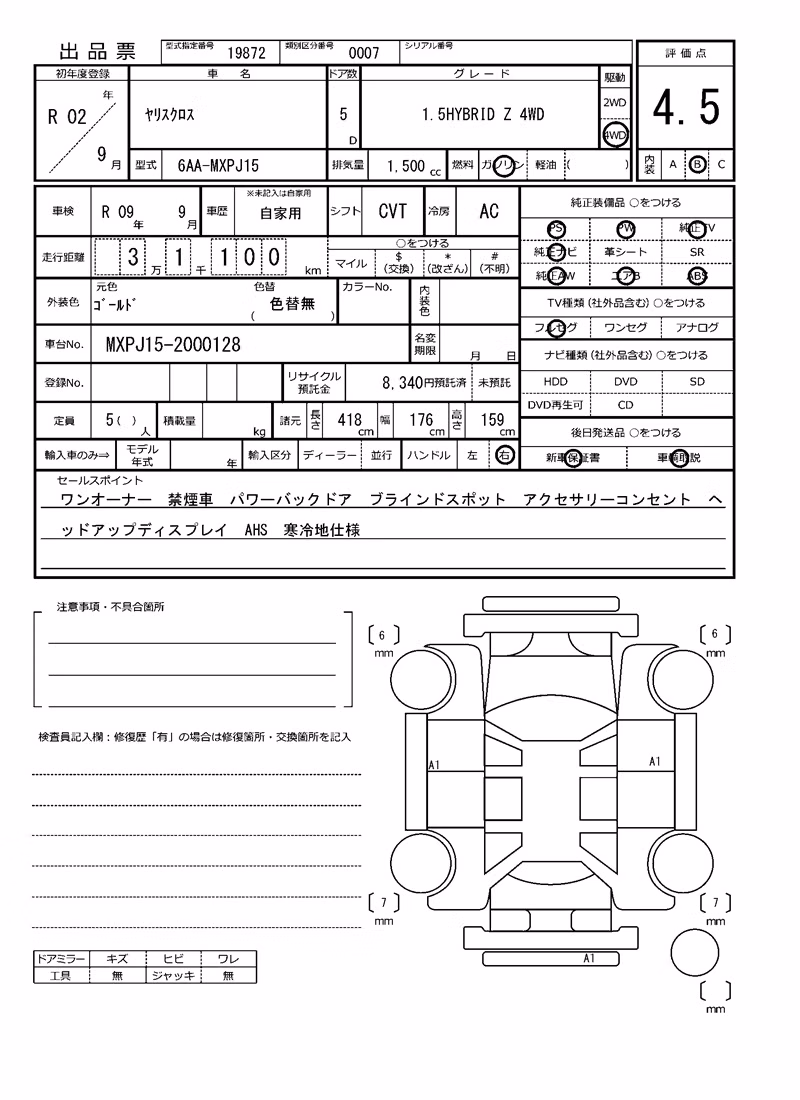 出品票 型式指定番号 19872 類別区分番号 0007 シリアル番号
初年度登録 車名 ドア数 グレード 駆動 評価点
R 02 年 9 月 ﾔﾘｽｸﾛｽ 5 D 1.5HYBRID Z 4WD 2WD 4WD 4.5
型式 6AA-MXPJ15 排気量 1,500 cc 燃料 ガソリン 軽油 ( ) 内装 A B C
車検 R 09 年 9 月 車歴 ※未記入は自家用 自家用 シフト CVT 冷房 AC
走行距離 3 万 1 千 1 0 0 km
○をつける
マイル $ (交換) * (改ざん) # (不明)
外装色 元色 ｺﾞｰﾙﾄﾞ 色替 ( 色替無 ) カラーNo. 内装色
車台No. MXPJ15-2000128 名変期限 月 日
登録No. リサイクル預託金 8,340円預託済 未預託
定員 5( ) 人 積載量 kg 諸元 長さ 418 cm 幅 176 cm 高さ 159 cm
輸入車のみ⇒ モデル年式 年 輸入区分 ディーラー 並行 ハンドル 左 右
純正装備品 ○をつける
PS PW 純正TV
純正ナビ 革シート SR
純正AW エアB ABS
TV種類(社外品含む)○をつける
フルセグ ワンセグ アナログ
ナビ種類(社外品含む)○をつける
HDD DVD SD
DVD再生可 CD
後日発送品 ○をつける
新車保証書 車輌取説
セールスポイント
ワンオーナー 禁煙車 パワーバックドア ブラインドスポット アクセサリーコンセント ヘ
ッドアップディスプレイ AHS 寒冷地仕様
注意事項・不具合箇所
検査員記入欄：修復歴「有」の場合は修復箇所・交換箇所を記入
ドアミラー キズ ヒビ ワレ
工具 無 ジャッキ 無
6 mm 6 mm
A1 A1
7 mm 7 mm
A1
mm